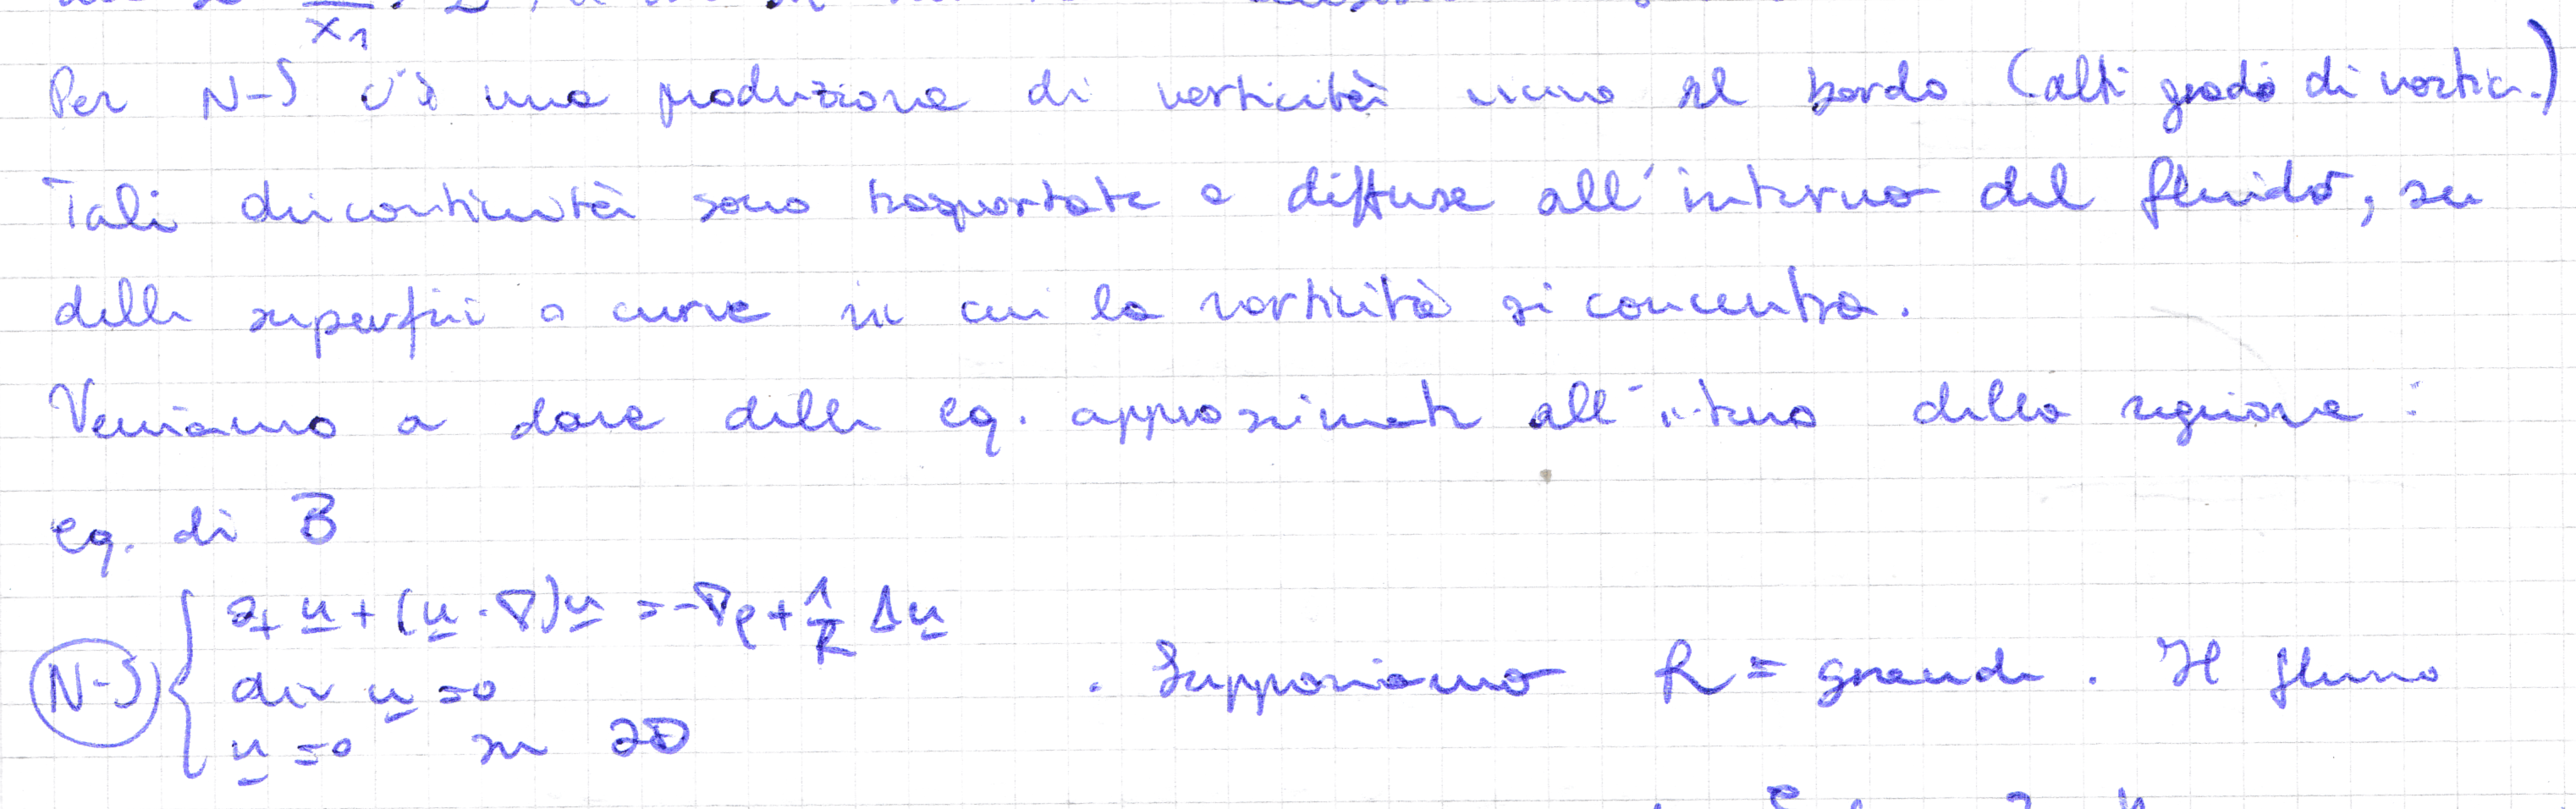 x₁
Per N-S c'è una produzione di vorticità vicino al bordo (alti gradi di vortic.)
Tali discontinuità sono trasportate e diffuse all'interno del fluido, su
delle superfici o curve in cui la vorticità si concentra.
Veniamo a dare delle eq. approssimate all'interno della regione:
eq. di B
∂ₜ u + (u · ∇)u = -∇p + 1/R Δu
N-S { div u = 0 . Supponiamo R = grande. Il flusso
u = 0 su ∂D